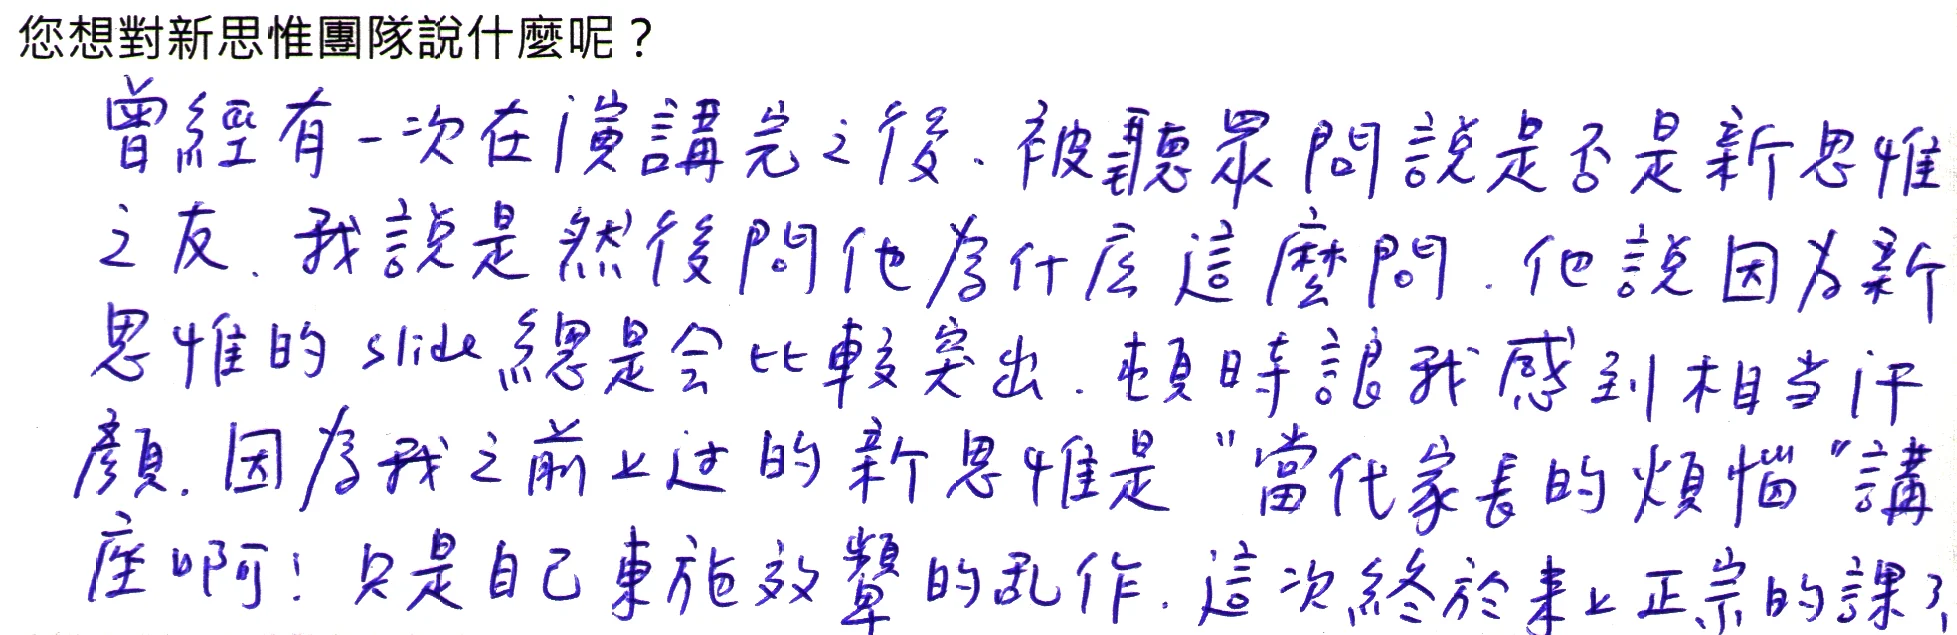 您想對新思惟團隊說什麼呢？
曾經有一次在演講完之後、被聽眾問說是否是新思惟
之友、我說是然後問他為什么這麼問．他說因為新
思惟的 slide 總是会比較突出．頓時讓我感到相当汗
顏．因為我之前上过的新思惟是"當代家長的煩惱"講
座啊！只是自己東施效顰的乱作．這次終於來上正宗的課了